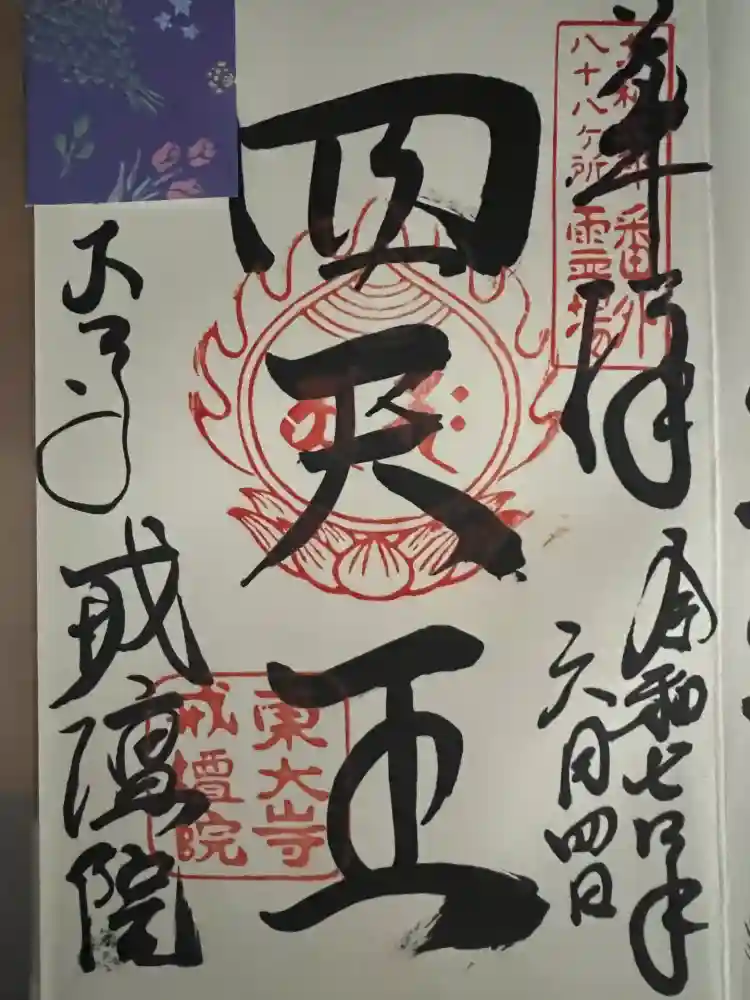 奉拝
令和七年
六月四日
番外
八十八ヶ所霊場
四天王
戒壇院
東大寺
戒壇院